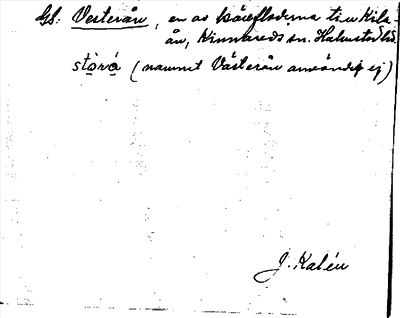 GS: Vesterån, en av källefloderna till Kila-
ån, Kinnareds sn. Halmstads
stòrá (namnet Västerån användes ej)
J. Kalén